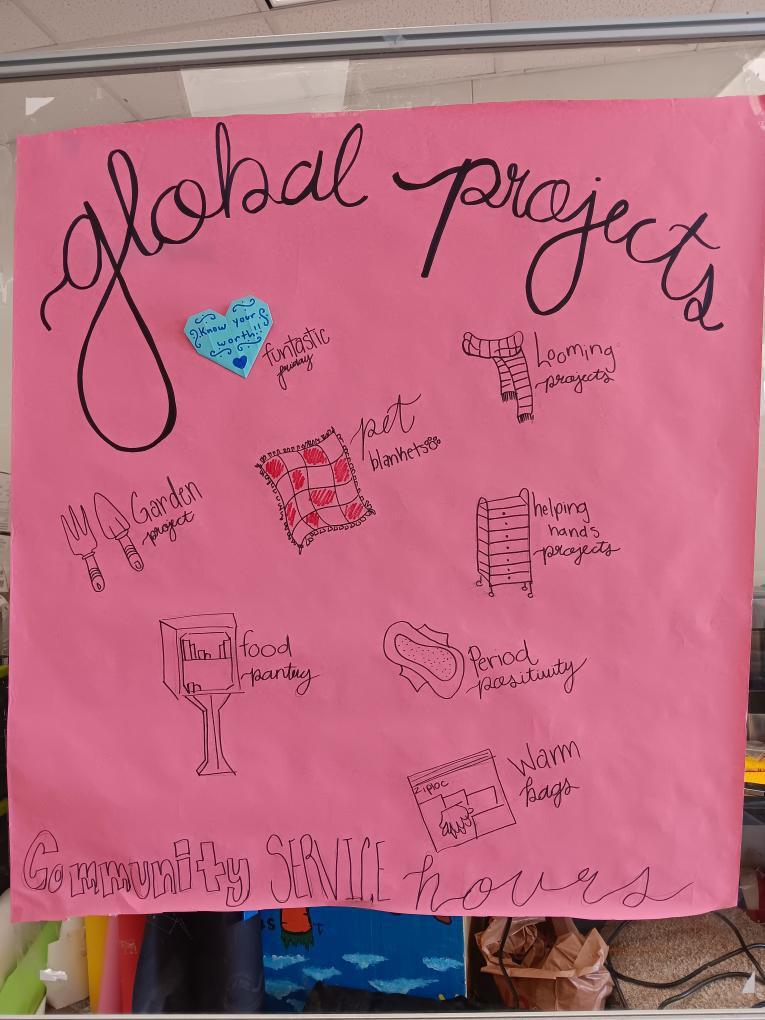 global projects
Know your
worth!!
funtastic
friday
Looming
projects
pet
blankets
Garden
project
helping
hands
projects
food
pantry
Period
positivity
Warm
bags
Ziploc
Community SERVICE hours